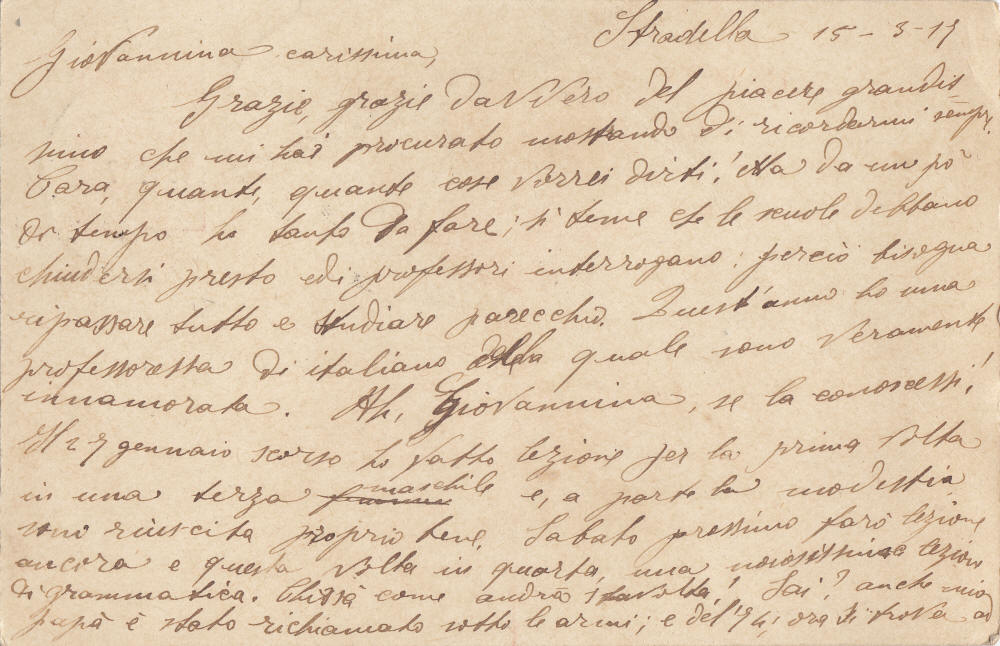 Stradella 15-3-17
Giovannina carissima,
Grazie, grazie davvero del piacere grandis
simo che mi hai procurato mostrando di ricordarmi sempre.
Cara, quante, quante cose vorrei dirti! Ma da un pò
di tempo ho tanto da fare; si teme che le scuole debbano
chiudersi presto ed i professori interrogano: perciò bisogna
ripassare tutto e studiare parecchio. Quest'anno ho una
professoressa di italiano della quale sono veramente
innamorata. Ah, Giovannina, se la conoscessi!
Il 27 gennaio scorso ho fatto lezione per la prima volta
in una terza maschile e, a parte la modestia,
sono riuscita proprio bene. Sabato prossimo farò lezione
ancora e questa volta in quarta, una noiosissima lezione
di grammatica. Chissà come andrà stavolta! Sai? anche mio
papà è stato richiamato sotto le armi; è del '74; ora si trova ad